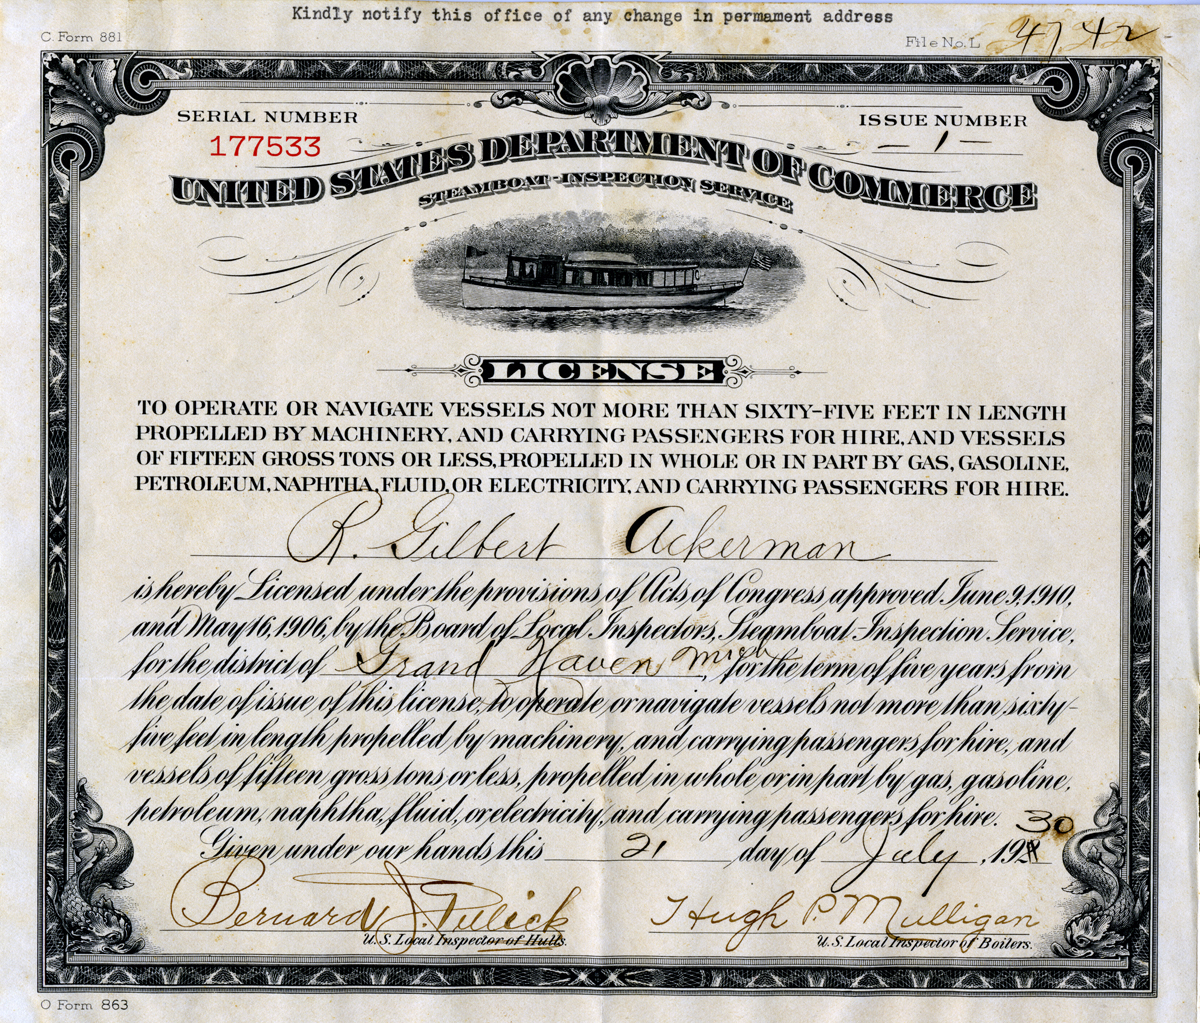 Kindly notify this office of any change in permament address
C. Form 881
File No. L 47,42
SERIAL NUMBER
177533
ISSUE NUMBER
- 1 -
UNITED STATES DEPARTMENT OF COMMERCE
STEAMBOAT-INSPECTION SERVICE
LICENSE
TO OPERATE OR NAVIGATE VESSELS NOT MORE THAN SIXTY-FIVE FEET IN LENGTH
PROPELLED BY MACHINERY, AND CARRYING PASSENGERS FOR HIRE, AND VESSELS
OF FIFTEEN GROSS TONS OR LESS, PROPELLED IN WHOLE OR IN PART BY GAS, GASOLINE,
PETROLEUM, NAPHTHA, FLUID, OR ELECTRICITY, AND CARRYING PASSENGERS FOR HIRE.
R. Gilbert Ackerman
is hereby Licensed under the provisions of Acts of Congress approved June 9, 1910,
and May 16, 1906, by the Board of Local Inspectors, Steamboat-Inspection Service,
for the district of Grand Haven Mich, for the term of five years from
the date of issue of this license, to operate or navigate vessels not more than sixty-
five feet in length propelled by machinery, and carrying passengers for hire, and
vessels of fifteen gross tons or less, propelled in whole or in part by gas, gasoline,
petroleum, naphtha, fluid, or electricity, and carrying passengers for hire.
Given under our hands this 21 day of July, 1930
Bernard J. Hugh P. Mulligan
U.S. Local Inspector of Hulls. U.S. Local Inspector of Boilers.
O Form 863